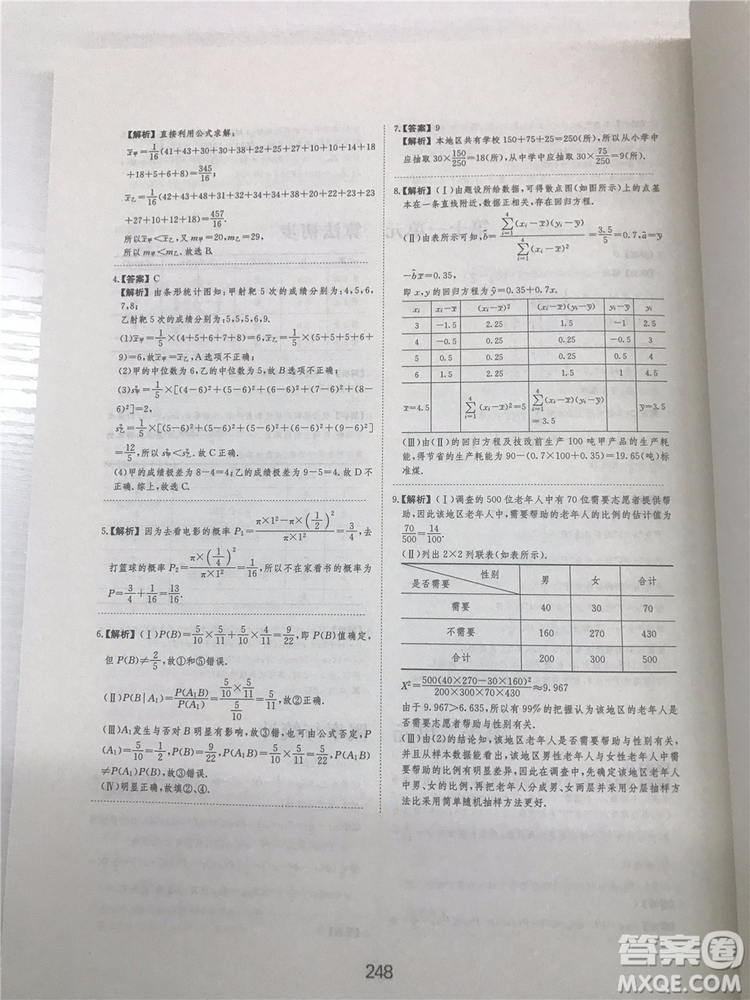 【解析】直接利用公式求解:
x̄甲=1/16(41+43+30+30+38+22+25+27+10+10+14+18
+18+5+6+8)=345/16,
x̄乙=1/16(42+43+48+31+32+34+34+38+20+22+23+23
+27+10+12+18)=457/16.
所以x̄甲<x̄乙,又m甲=20,m乙=29,
所以m甲<m乙.故选B.
4.【答案】C
【解析】由条形统计图知:甲射靶5次的成绩分别为:4,5,6,
7,8;
乙射靶5次的成绩分别为:5,5,5,6,9;
所以x̄甲=1/5×(4+5+6+7+8)=6;x̄乙=1/5×(5+5+5+6+
9)=6.所以x̄甲=x̄乙.A选项不正确;
(2)甲的中位数为6,乙的中位数为5,B不正确;
(3)s²甲=1/5×[(4-6)²+(5-6)²+(6-6)²+(7-6)²+(8-
6)²]=2,
s²乙=1/5×[(5-6)²+(5-6)²+(5-6)²+(6-6)²+(9-6)²]=
12/5,所以s²甲<s²乙.故C正确.
(4)甲的成绩极差为8-4=4;乙的成绩极差为9-5=4.D
不正确.综上,故选C.
5.【解析】因为去看电影的概率P₁=(π×1²-π×(1/2)²)/(π×1²)=3/4,去
打篮球的概率P₂=(π×(1/4)²)/(π×1²)=1/16,所以不在家看书的概率为
P=3/4+1/16=13/16.
6.【解析】(Ⅰ)P(B)=5/10×5/11+5/10×4/11=9/22,即P(B)值确定,
但P(B)≠2/5,故①和⑤错误.
(Ⅱ)P(B|A₁)=P(A₁B)/P(A₁)=(5/10×5/11)/(5/10)=5/11,故②正确.
(Ⅲ)A₁发生与否对B明显有影响,故③错,也可由公式否定,P
(A₁)=5/10=1/2,P(B)=9/22,P(A₁B)=5/10×5/11=5/22,P(A₁)×P(B)
≠P(A₁B),故③错误.
(Ⅳ)明显正确,故填②、④.
7.【答案】9
【解析】本地区共有学校150+75+25=250(所),从小学中
应抽取30×150/250=18(所),从中学中应抽取30×75/250=9(所).
8.【解析】(Ⅰ)由题设所给数据,可得散点图(如图所示)上的点基
本在一条直线附近,数据正相关,存在回归方程.
(Ⅱ)由上表所示可知,b̂=∑(i=1→4)(xᵢ-x̄)(yᵢ-ȳ)/∑(i=1→4)(xᵢ-x̄)²=3.5/5=0.7,â=ȳ
-b̂x̄=0.35,
即x,y的回归方程为ŷ=0.7x+0.35.
xᵢ xᵢ-x̄ (xᵢ-x̄)² (xᵢ-x̄)(yᵢ-ȳ) yᵢ-ȳ yᵢ
3 -1.5 2.25 1.5 -1 2.5
4 -0.5 0.25 0.25 -0.5 3
5 0.5 0.25 0.25 0.5 4
6 1.5 2.25 1.5 1 4.5
x̄=4.5 ∑(i=1→4)(xᵢ-x̄)²=5 ∑(i=1→4)(xᵢ-x̄)(yᵢ-ȳ)=3.5 ȳ=3.5
(Ⅲ)由(Ⅱ)的回归方程及技改前生产100吨甲产品的生产耗
能,得节省的生产耗能为90-(0.7×100+0.35)=19.65(吨)标
准煤.
9.【解析】(Ⅰ)调查的500位老年人中有70位需要志愿者提供帮
助,因此该地区老年人中,需要帮助的老年人的比例的估计值为
70/500=14/100.
(Ⅱ)列出2×2列联表(如表所示).
性别 是否需要 男 女 合计
需要 40 30 70
不需要 160 270 430
合计 200 300 500
X²=500(40×270-30×160)²/(200×300×70×430)≈9.967
由于9.967>6.635,所以有99%的把握认为该地区的老年人是
否需要志愿者帮助与性别有关.
(Ⅲ)由(2)的结论知,该地区老年人是否需要帮助与性别有关,
并且从样本数据能看出,该地区男性老年人与女性老年人中需
要帮助的比例有明显差异,因此在调查中,先确定该地区老年人
中男、女的比例,再把老年人分成男、女两层并采用分层抽样方
法比采用简单随机抽样方法更好.
248
答案圈
MXQE.COM